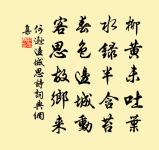 柳黄未吐叶
水绿半含苔
春色边城动
客思故乡来
何逊边城思诗词典网
喜